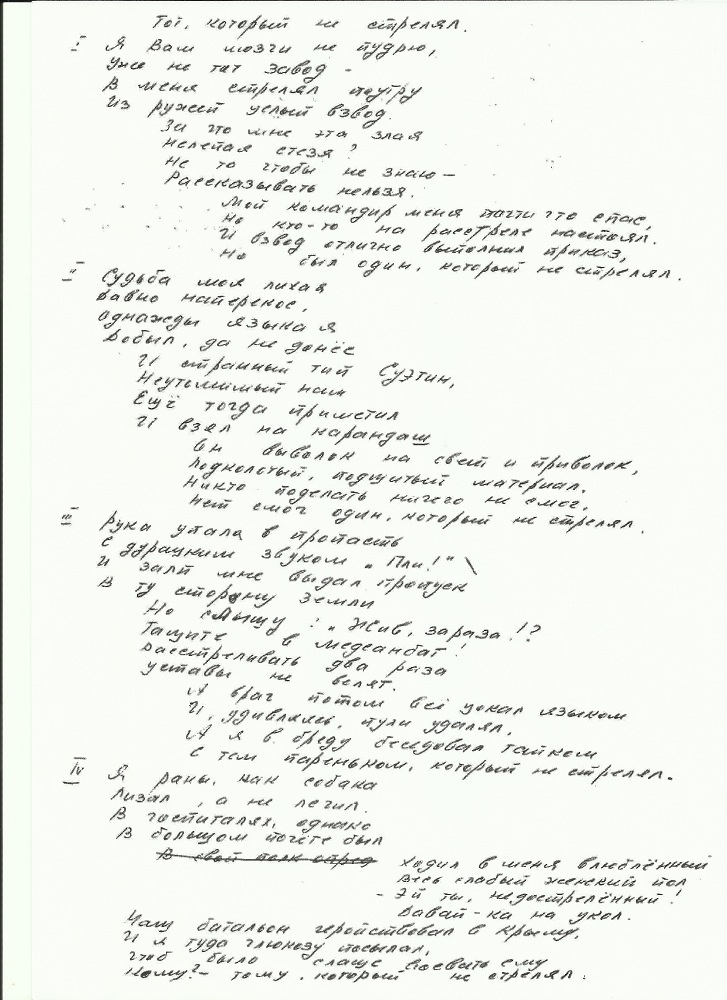 Тот, который не стрелял.
I Я Вам мозги не пудрю,
Уже не тот завод -
В меня стрелял поутру
Из ружей целый взвод.
За что мне эта злая
Нелепая стезя?
Не то чтобы не знаю —
Рассказывать нельзя.
Мой командир меня почти что спас,
Но кто-то на расстреле настоял.
И взвод отлично выполнил приказ,
Но был один, который не стрелял.
II Судьба моя лихая
Давно наперекос,
Однажды языка я
Добыл, да не донёс
И странный тип Суэтин,
Неутомимый наш
Ещё тогда приметил
И взял на карандаш
Он выволок на свет и приволок,
Подколотый, подшитый материал.
Никто поделать ничего не смог.
Нет смог один, который не стрелял.
III Рука упала в пропасть
С дурацким звуком „Пли!"
И залп мне выдал пропуск
В ту сторону земли
Но слышу: „Жив, зараза!?
Тащите в медсанбат!
Расстреливать два раза
уставы не велят.
А врач потом всё цокал языком
И, удивляясь, пули удалял,
А я в бреду беседовал тайком
С тем пареньком, который не стрелял.
IV Я раны, как собака
Лизал, а не лечил.
В госпиталях, однако
В большом почёте был
В свой полк опред
Ходил в меня влюблённый
Весь слабый женский пол
- Эй ты, недострелённый!
Давай-ка на укол.
Наш батальон геройствовал в Крыму,
И я туда глюкозу посылал,
Чтоб было слаще воевать ему
Кому?- тому, который не стрелял.